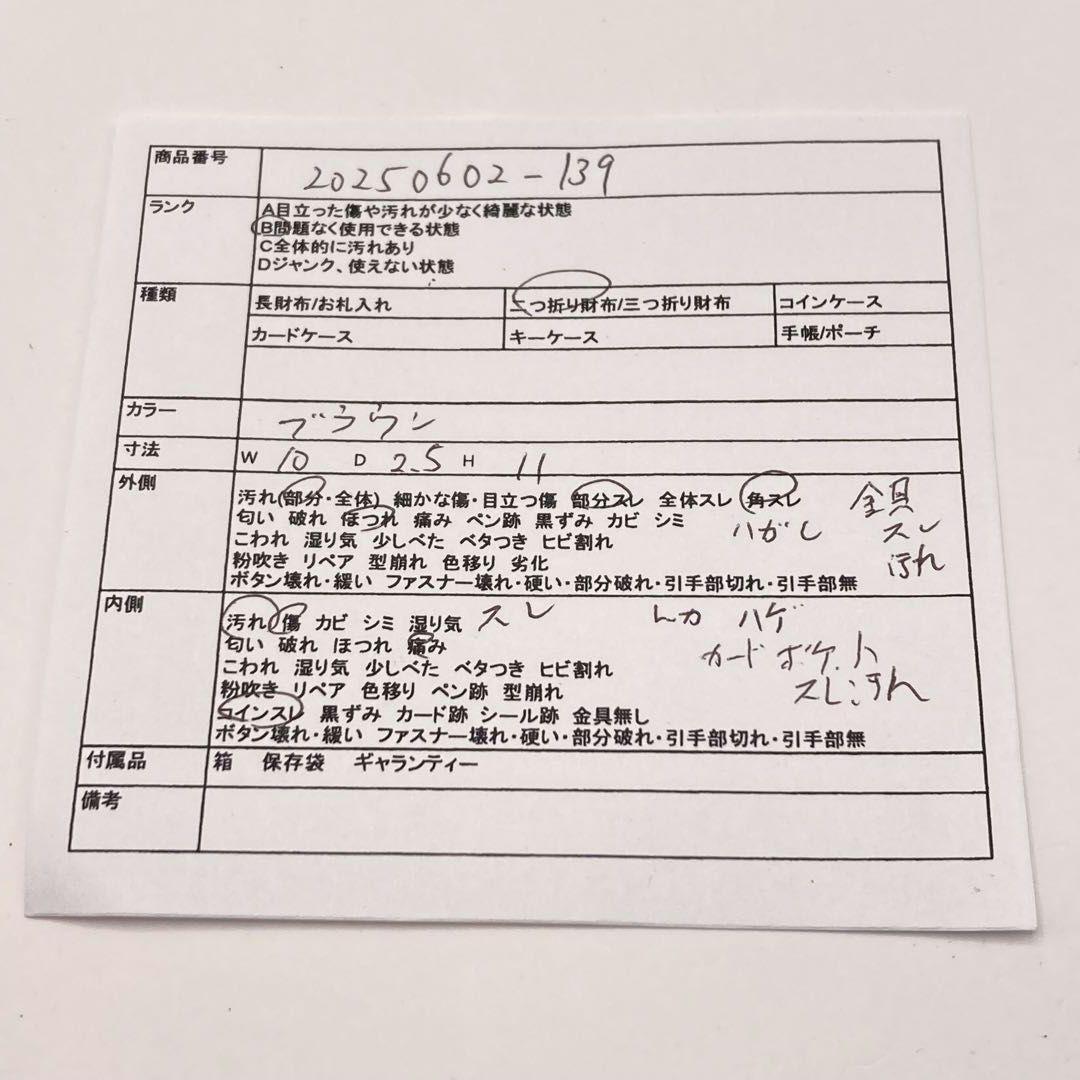 商品番号 20250602-139
ランク A目立った傷や汚れが少なく綺麗な状態
B問題なく使用できる状態
C全体的に汚れあり
Dジャンク、使えない状態
種類 長財布/お札入れ 二つ折り財布/三つ折り財布 コインケース
カードケース キーケース 手帳/ポーチ
カラー ブラウン
寸法 W 10 D 2.5 H 11
外側 汚れ(部分・全体) 細かな傷・目立つ傷 部分スレ 全体スレ 角スレ 金具
匂い 破れ ほつれ 痛み ペン跡 黒ずみ カビ シミ ハガレ スレ
こわれ 湿り気 少しべた ベタつき ヒビ割れ 汚れ
粉吹き リペア 型崩れ 色移り 劣化
ボタン壊れ・緩い ファスナー壊れ・硬い・部分破れ・引手部切れ・引手部無
内側 汚れ 傷 カビ シミ 湿り気 スレ ハゲ
匂い 破れ ほつれ 痛み カードポケット
こわれ 湿り気 少しべた ベタつき ヒビ割れ
粉吹き リペア 色移り ペン跡 型崩れ スレ
コインスレ 黒ずみ カード跡 シール跡 金具無し
ボタン壊れ・緩い ファスナー壊れ・硬い・部分破れ・引手部切れ・引手部無
付属品 箱 保存袋 ギャランティー
備考